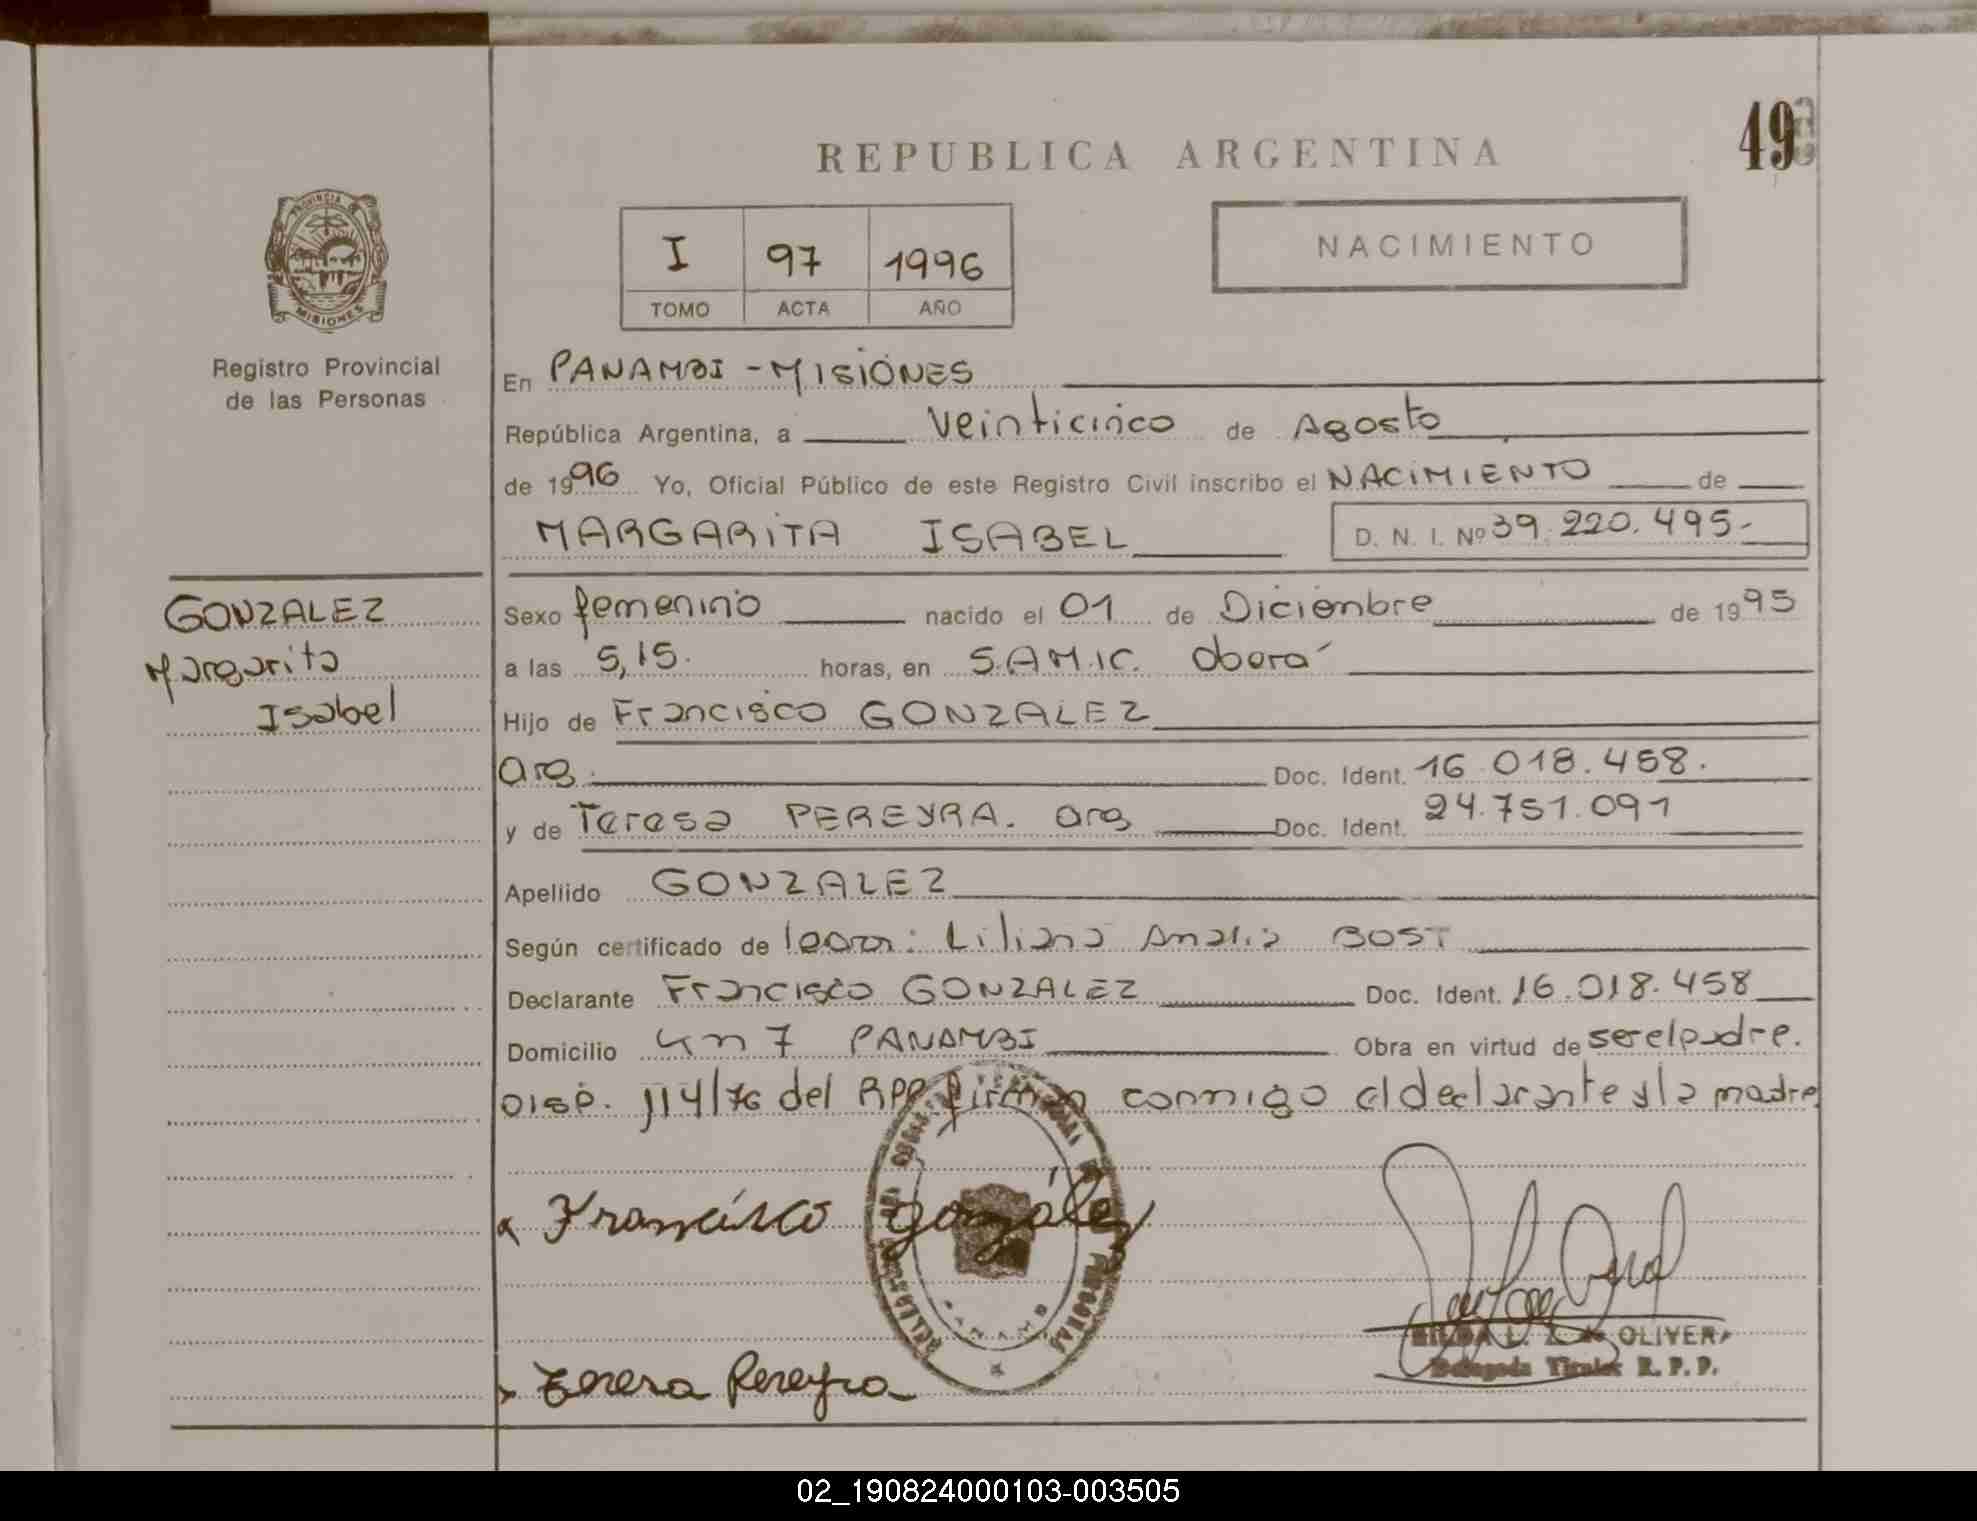 49
REPUBLICA ARGENTINA
PROVINCIA DE
MISIONES
Registro Provincial
de las Personas
I 97 1996
TOMO ACTA AÑO
NACIMIENTO
En PANAMBI - MISIONES
República Argentina, a veinticinco de Agosto
de 1996 Yo, Oficial Público de este Registro Civil inscribo el NACIMIENTO de
MARGARITA ISABEL D. N. I. Nº 39.220.495.-
GONZALEZ
Margarita
Isabel
Sexo femenino nacido el 01 de Diciembre de 1995
a las 5,15. horas, en S.AM.IC. Oberá
Hijo de Francisco GONZALEZ
arg. Doc. Ident. 16.018.458.
y de Teresa PEREYRA. arg Doc. Ident. 24.751.091
Apellido GONZALEZ
Según certificado de Liliana Analia BOST
Declarante Francisco GONZALEZ Doc. Ident. 16.018.458
Domicilio Km 7 PANAMBI Obra en virtud de ser el padre.
DISP. 114/76 del RPP. firman conmigo el declarante y la madre
Francisco González
OLIVERA
Delegada Titular R.P.P.
Teresa Pereyra
02_190824000103-003505